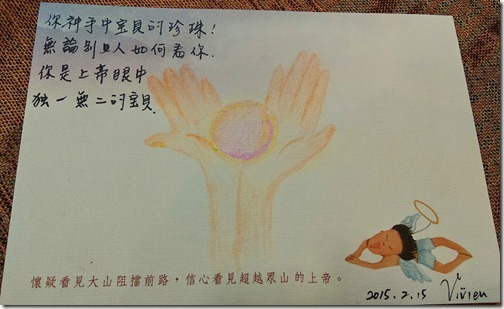 你神手中宝贝的珍珠!
無論別人如何看你.
你是上帝眼中
独一無二的宝贝.
懷疑看見大山阻擋前路,信心看見超越眾山的上帝。
2015.2.15 Vivien